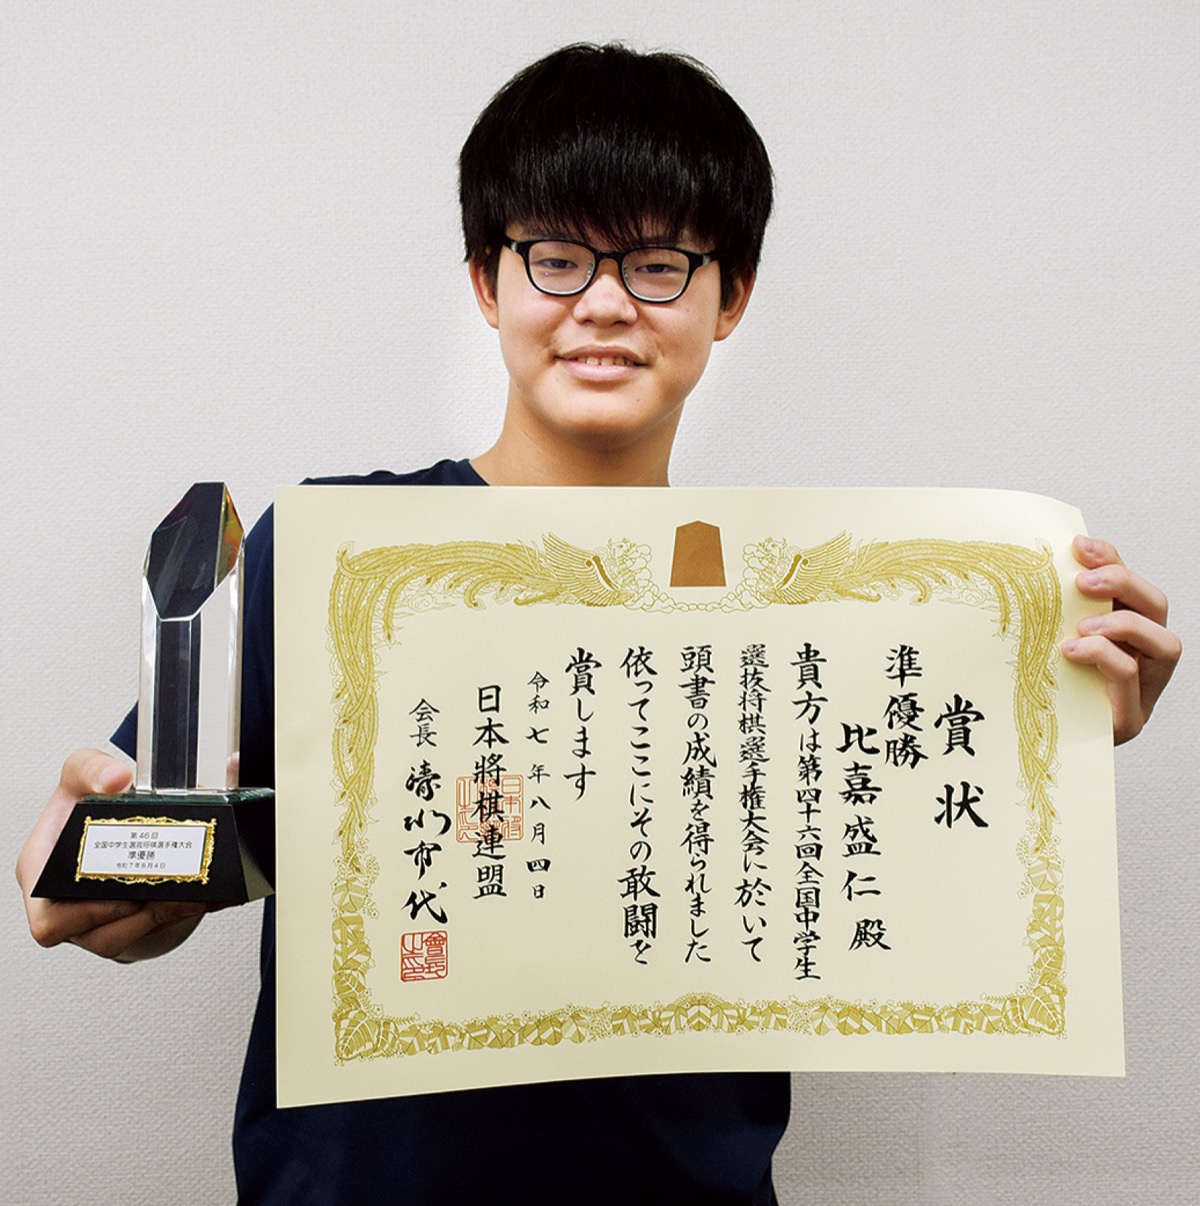 賞状
準優勝
比嘉盛仁殿
貴方は第四十六回全国中学生
選抜将棋選手権大会に於いて
頭書の成績を得られました
依ってここにその敢闘を
賞します
令和七年八月四日
日本將棋連盟
会長 清水市代
第46回
全国中学生選抜将棋選手権大会
準優勝
令和7年8月4日